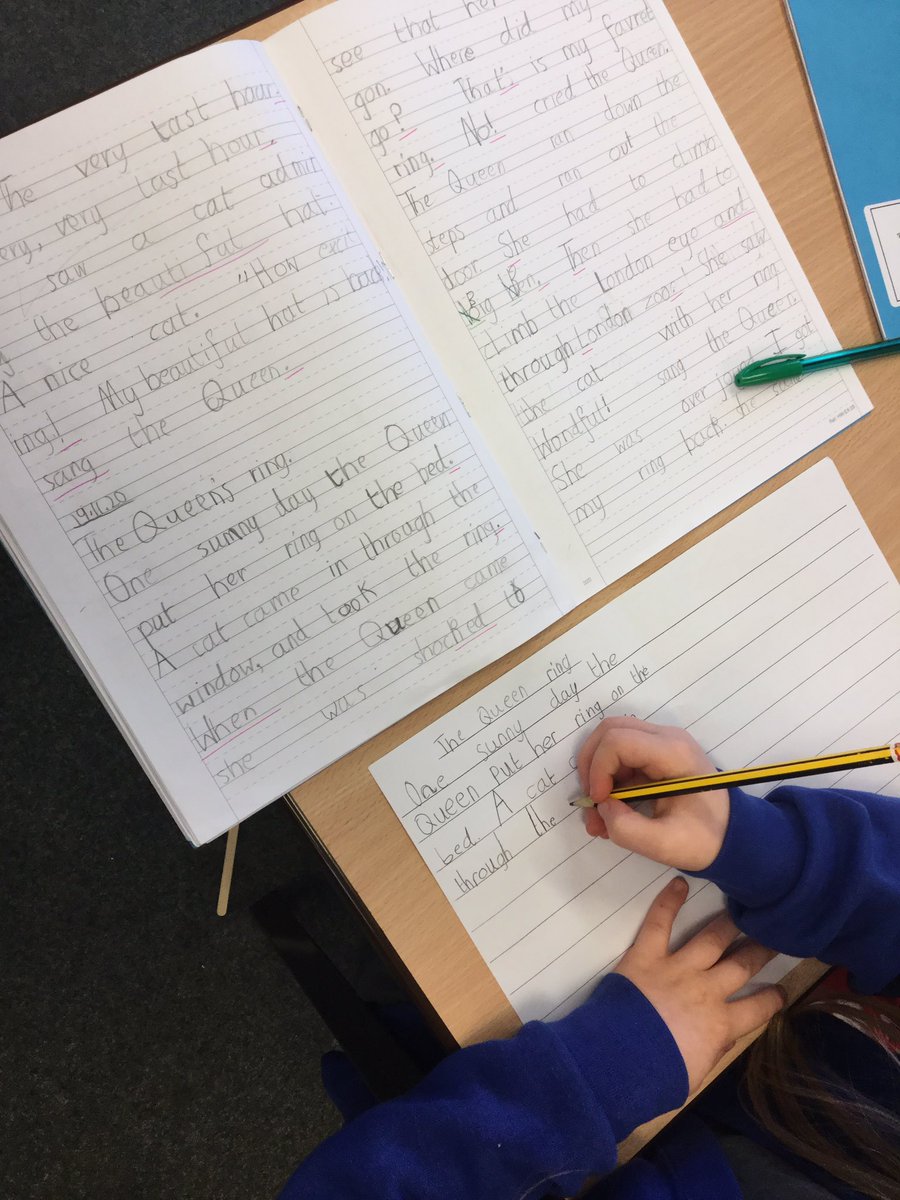 The very last hour.
ery, very last hour,
saw a cat admir
g the beautifal hat.
A nice cat. "How excit
ing! My beautiful hat is back!
sang the Queen.
19.11.20
The Queen's ring.
One sunny day the Queen
put her ring on the bed.
A cat came in through the
window, and took the ring.
When the Queen came
she was shocked to
see that her
gon. Where did my
go? That's is my favret
ring. No! cried the Queen.
The Queen ran down the
steps and ran out the
door. She had to climb
Big Ben. Then she had to
climb the London eye and
through London zoo! She saw
the cat with her ring
Wondful! sang the Queen.
She was over joyed I got
my ring back. she said
The Queen ring
One sunny day the
Queen put her ring on the
bed. A cat
through the